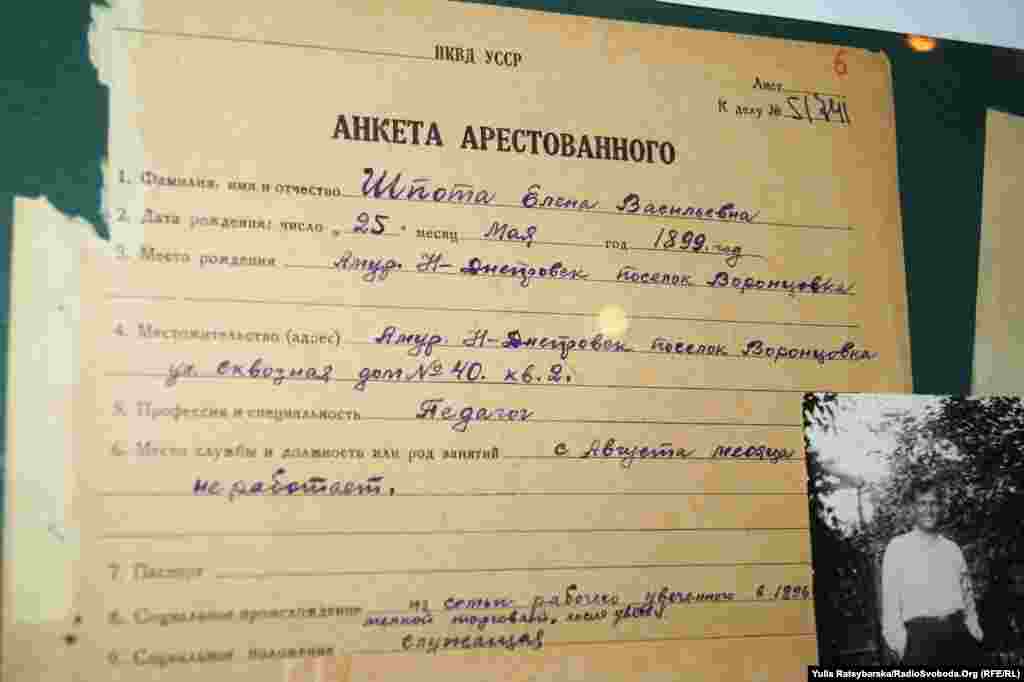 НКВД УССР
6
Лист
К делу №
АНКЕТА АРЕСТОВАННОГО
1. Фамилия, имя и отчество Шпота Елена Васильевна
2. Дата рождения: число „ 25 " месяц Мая год 1899. год
3. Место рождения Амур. Н-Днепровск поселок Воронцовка
4. Местожительство (адрес) Амур. Н-Днепровск поселок Воронцовка
ул. сквозная дом № 40. кв. 2.
5. Профессия и специальность Педагог
6. Место службы и должность или род занятий с Августа месяца
не работает.
7. Паспорт
8. Социальное происхождение из семьи рабочего в 1896
мелкой торговлей, после
9. Социальное положение служащая
Yulia Ratsybarska/RadioSvoboda.Org (RFE/RL)